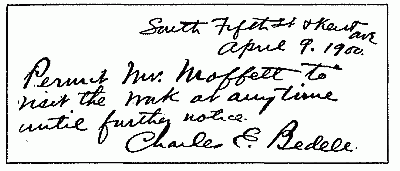 South Fifth St & Kent
ave
April 9. 1900.
Permit Mr. Moffett to
visit the work at anytime
until further notice.
Charles E. Bedell.